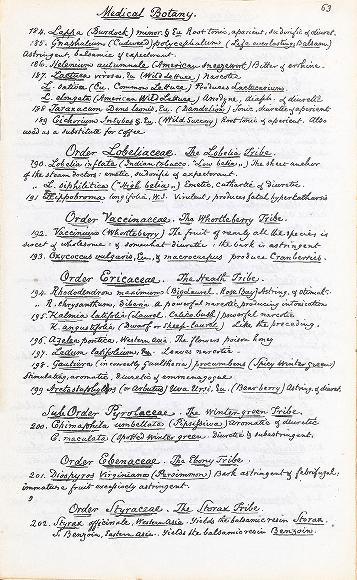 63
Medical Botany.
184. Lappa (Burdock) minor. & Eu Root tonic, aperient, sudorific & diuret.
185. Gnaphalium (Cudweed) polycephalum (Life everlasting, Balsam)
Astringent, balsamic & expectorant.
186. Helenium autumnale (American Sneezewort) Bitter & errhine.
187. Lactuca virosa, Eu (Wild Lettuce) Narcotic
L. sativa (Eu. Common Lettuce) Produces Lactucarium
L. elongata (American Wild Lettuce) Anodyne, diaph. & diuretic
188 Taraxacum Dens leonis, Eu. (Dandelion) Tonic, diuretic & aperient
189 Cichorium Intybus & Eu. (Wild Succory) Root tonic & aperient. Also
used as a substitute for coffee
Order Lobeliaceae. The Lobelia Tribe.
190. Lobelia inflata (Indian tobacco. "Low belia") The sheet-anchor
of the steam doctors: emetic, sudorific & expectorant.
" L. siphilitica ("High belia") Emetic, cathartic & diuretic.
191 Hippobroma longifolia, W.I. Virulent; produces fatal hypercatharsis
Order Vaccinaceae. The Whortleberry Tribe.
192. Vaccinium (Whortleberry) The fruit of nearly all the species is
sweet & wholesome: & somewhat diuretic: the bark is astringent
193. Oxycoccus vulgaris, Eu. & macrocarpus produce Cranberries
Order Ericaceae. The Heath Tribe.
194. Rhododendron maximum (Bigelaurel. Rose bay) Astring. & stimul.
" R. chrysanthum, Siberia A powerful narcotic, producing intoxication
195. Kalmia latifolia (Laurel. Calico bush) powerful narcotic
K. angustifolia (Dwarf or Sheep-laurel) Like the preceding.
196. Azalea pontica, Western Asia. The flowers poison honey
197. Ledum latifolium, Leaves narcotic.
198. Gaultiera (incorrectly gaultheria) procumbens (Spicy Wintergreen)
Stimulating, aromatic, diuretic & emmenagogue.
199 Arctostaphylos (or Arbutus) Uva Ursi, Eu. (Bearberry) Astring. & diuret.
Sub Order Pyrolaceae. The Wintergreen Tribe.
200. Chimaphila umbellata (Pipsissiva) aromatic & diuretic
C. maculata (spotted Winter green. Diuretic & subastringent.
Order Ebenaceae. The Ebony Tribe.
201. Diospyros Virginiana (Persimmon) Bark astringent & febrifugal:
immature fruit excessively astringent.
Order Styraceae. The Storax Tribe.
202. Styrax officinale, Western Asia. Yields the balsamic resin Storax.
S. Benzoin, Eastern Asia. Yields the balsamic resin Benzoin.